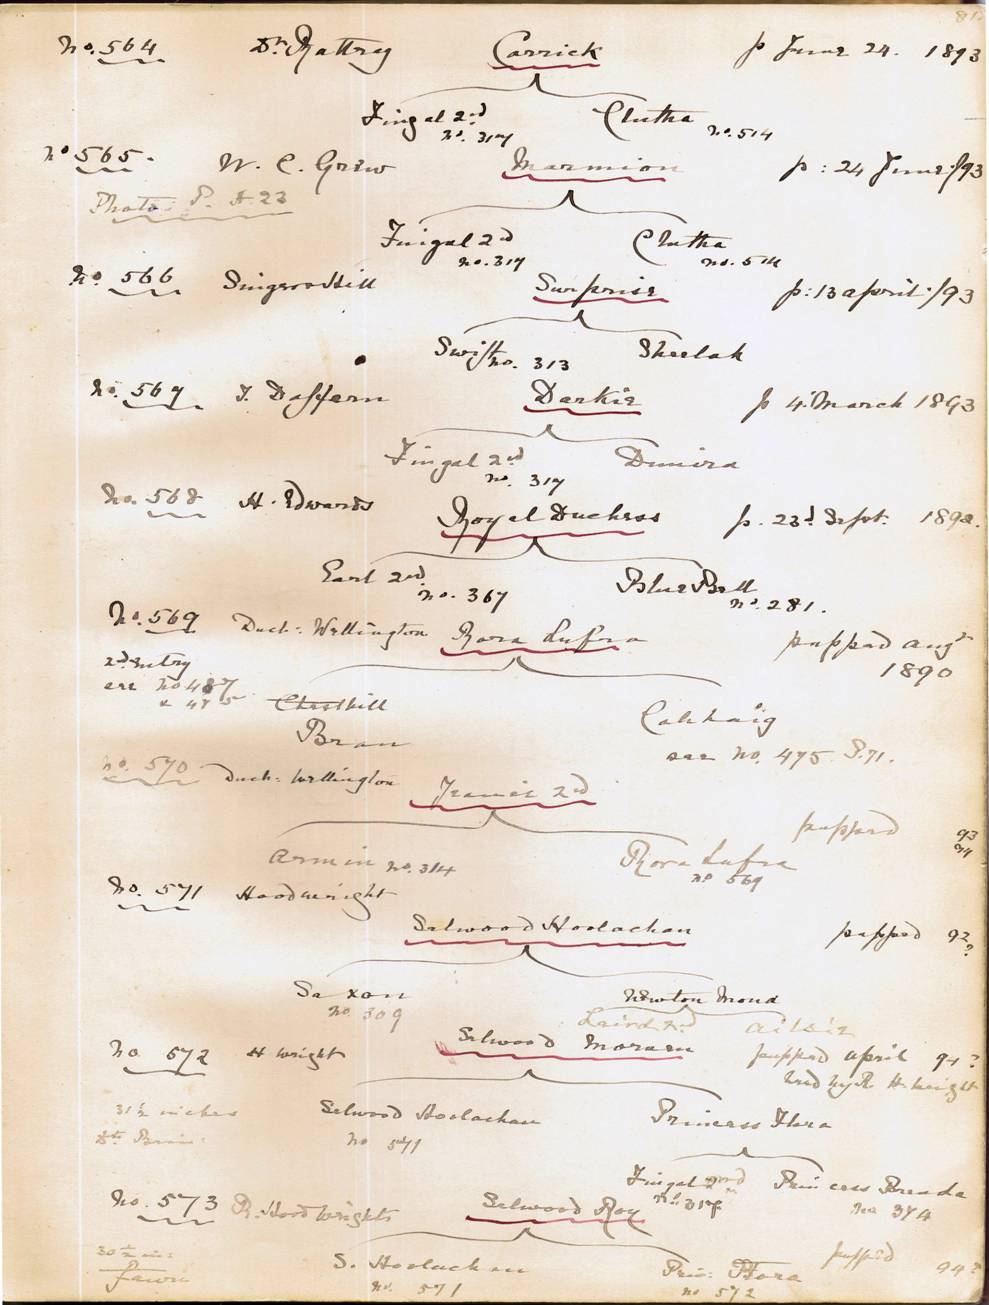 81.
No. 564 Dr. Rattray Carrick p June 24. 1893
Fingal 2nd Clutha
no. 317 no. 514
No 565. W. C. Grew Marmion p: 24 June/93
Photo: P. H. 23
Fingal 2nd Clutha
no. 317 no. 514
No. 566 Singers Hill Surprise p: 13 april/93
Swift no. 313 Sheelah
No. 567 T. Daffern Darkie p 4 March 1893
Fingal 2nd Dunira
no. 317
No. 568 H. Edwards Royal Duchess p. 22d Sept. 1892.
Earl 2nd. Blue Bell
no. 367 no. 281.
No. 569 Duch: Wellington Rora Lufra pupped augt
1890
2nd Entry
see no 487
& 475
Chesthill
Bran Cakhaig
see no. 475 P. 71.
No. 570 Duch: Wellington 2nd
pupped 93
94
Armin no. 314 Rora Lufra
no 569
No. 571 Hood wright
Selwood Hoolachan pupped 92?
Saxon Newton Mona
no 309 Laird 2nd ailsie
No. 572 H wright Selwood Morven pupped april 94?
bred by R. H. wright
31½ inches Selwood Hoolachan Princess Flora
no 571
Fingal 2nd Princess Breada
no. 317 no 374
No. 573 R. Hood wrights Selwood Roy
pupped 94?
30½ ins:
fawn
S. Hoolachan Prin: Flora
no. 571 no 572